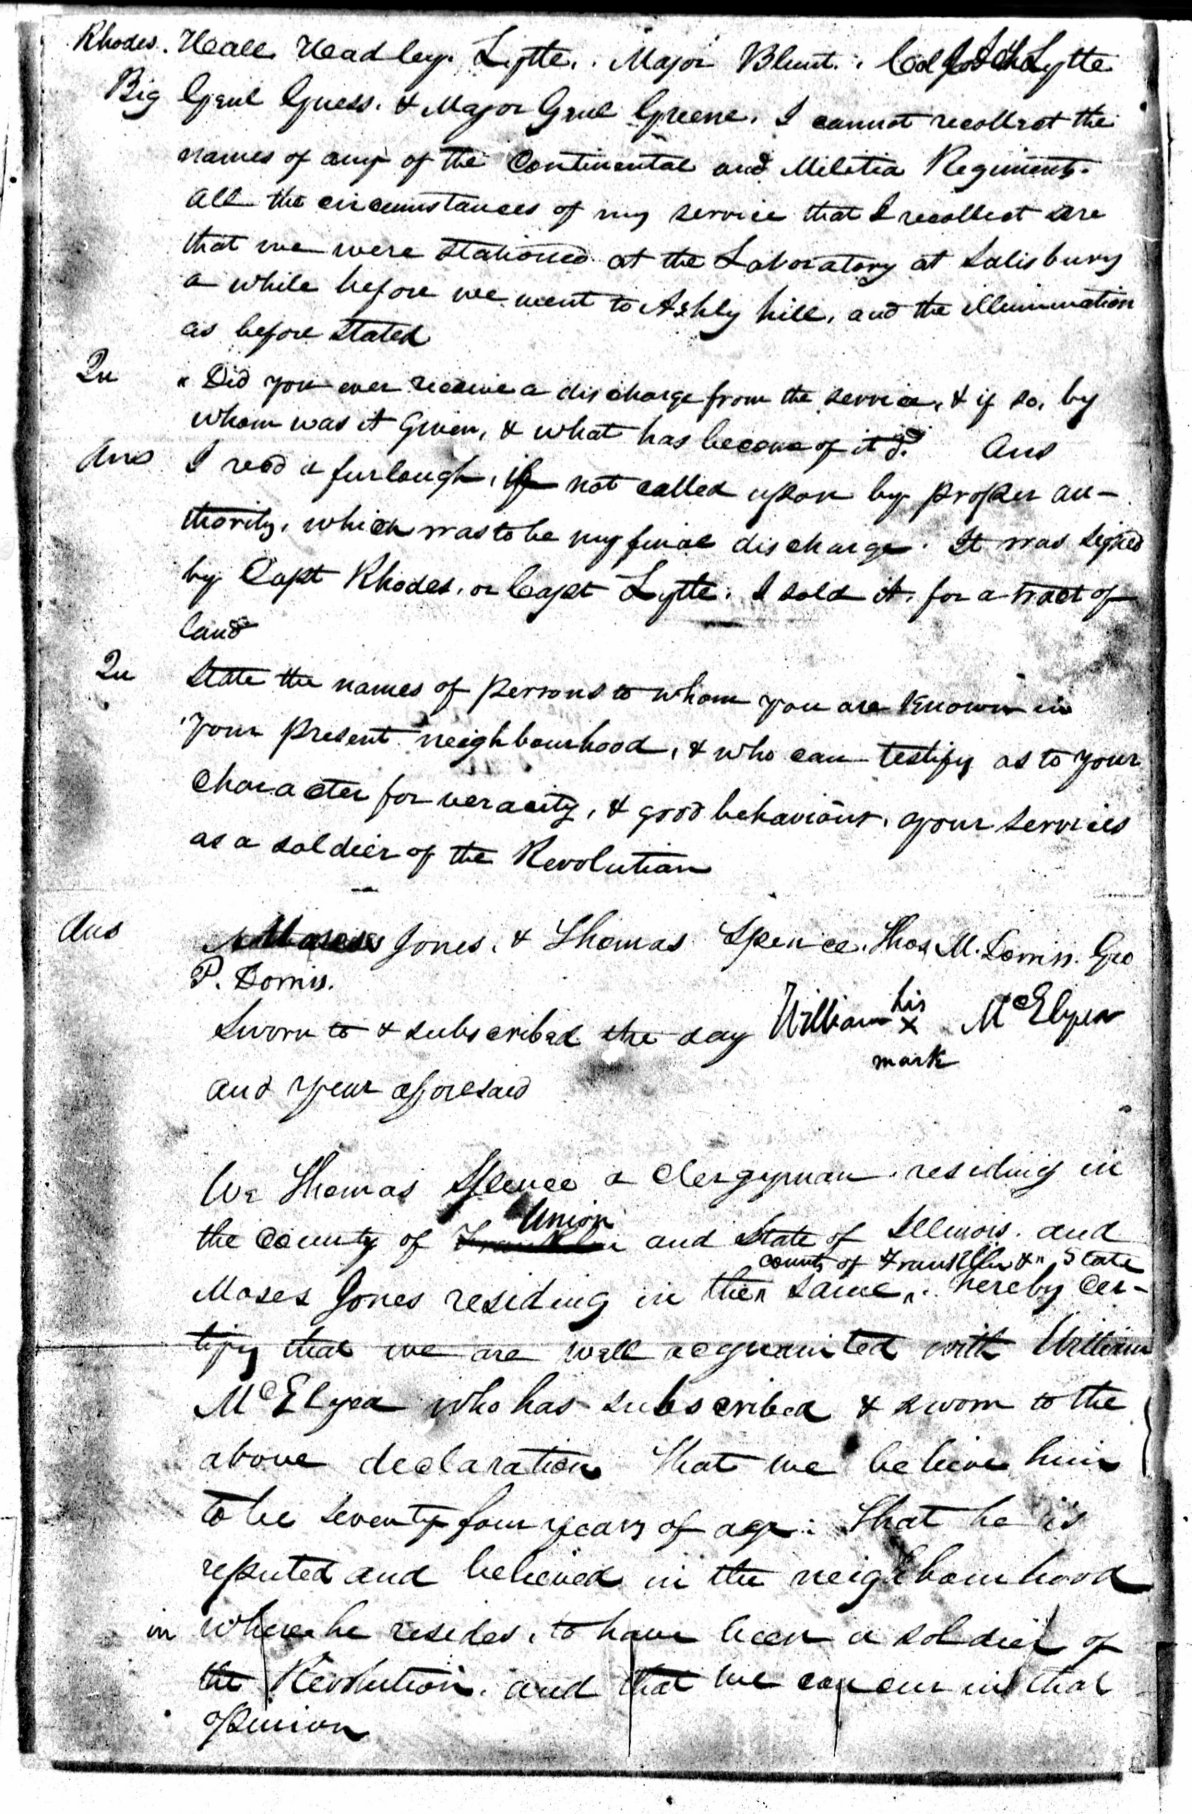 Rhodes. Hall Headley. Lytle. Major Blunt. Col Lytle
Big Genl Guess. & Major Genl Greene. I cannot recollect the
names of any of the Continental and Militia Regiments.
All the circumstances of my service that I recollect are
that we were stationed at the Laboratory at Salisbury
a while before we went to Ashly hill, and the illumination
as before stated
Qu "Did you ever receive a discharge from the service, & if so, by
whom was it given, & what has become of it? Ans
Ans I recd a furlough, if not called upon by proper au-
thority, which was to be my final discharge. It was signed
by Capt Rhodes, or Capt Lytle. I sold it, for a tract of
land
Qu State the names of persons to whom you are known in
your present neighbourhood, & who can testify as to your
character for veracity, & good behaviour, & your services
as a soldier of the Revolution
Ans Moses Jones, & Thomas Spence. Thos. M. Dorris. Geo
P. Dorris.
Sworn to & subscribed the day William his x McElyea
mark
and year aforesaid
We Thomas Spence a Clergyman residing in
Union
the County of Franklin and State of Illinois, and
county of Franklin & State
Moses Jones residing in the same hereby cer-
tify that we are well acquainted with William
McElyea who has subscribed & sworn to the
above declaration that we believe him
to be seventy four years of age: That he is
reputed and believed in the neighbourhood
in where he resides, to have been a soldier of
the Revolution. and that we concur in that
opinion